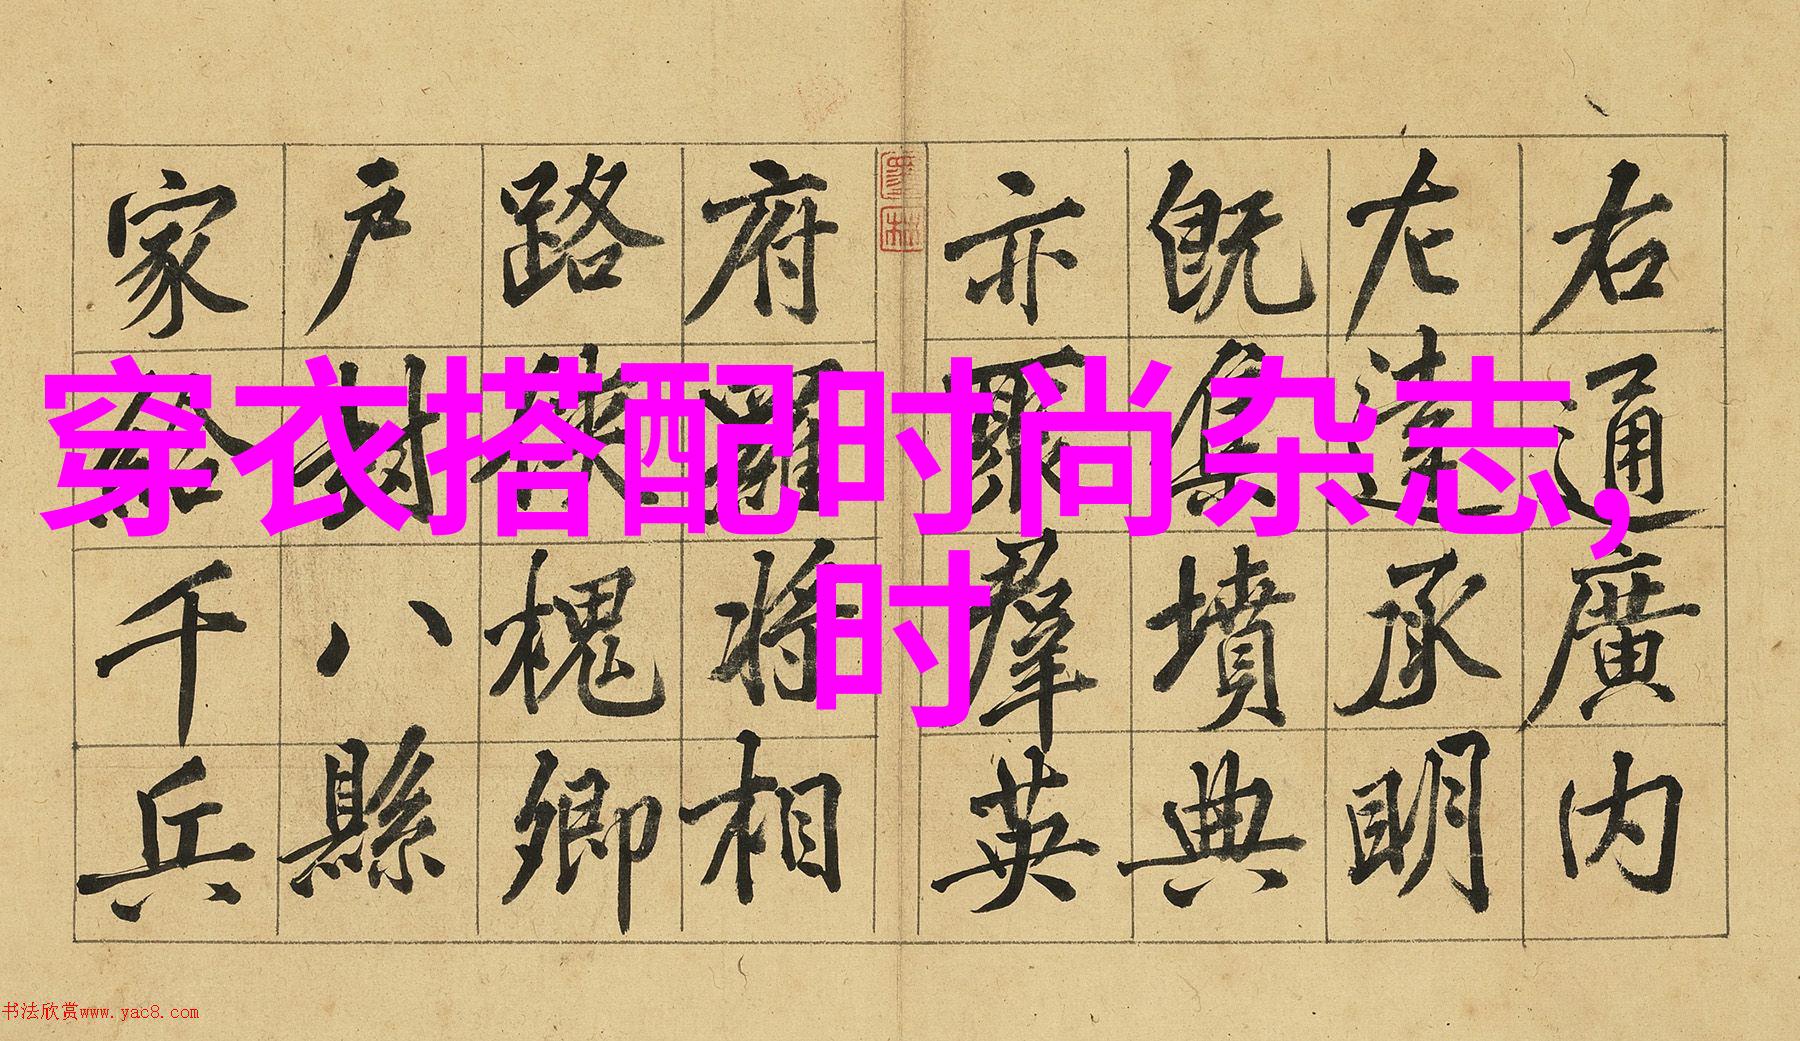 穿衣搭配时尚杂志,
时
右通廣内
左達承明
既集墳典
亦聚羣英
府羅將相
路俠槐卿
戶封八縣
家給千兵
书法欣赏www.yac8.com